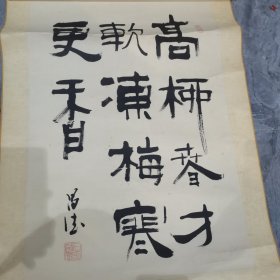 高柳春才
軟凍梅寒
更香
昌德